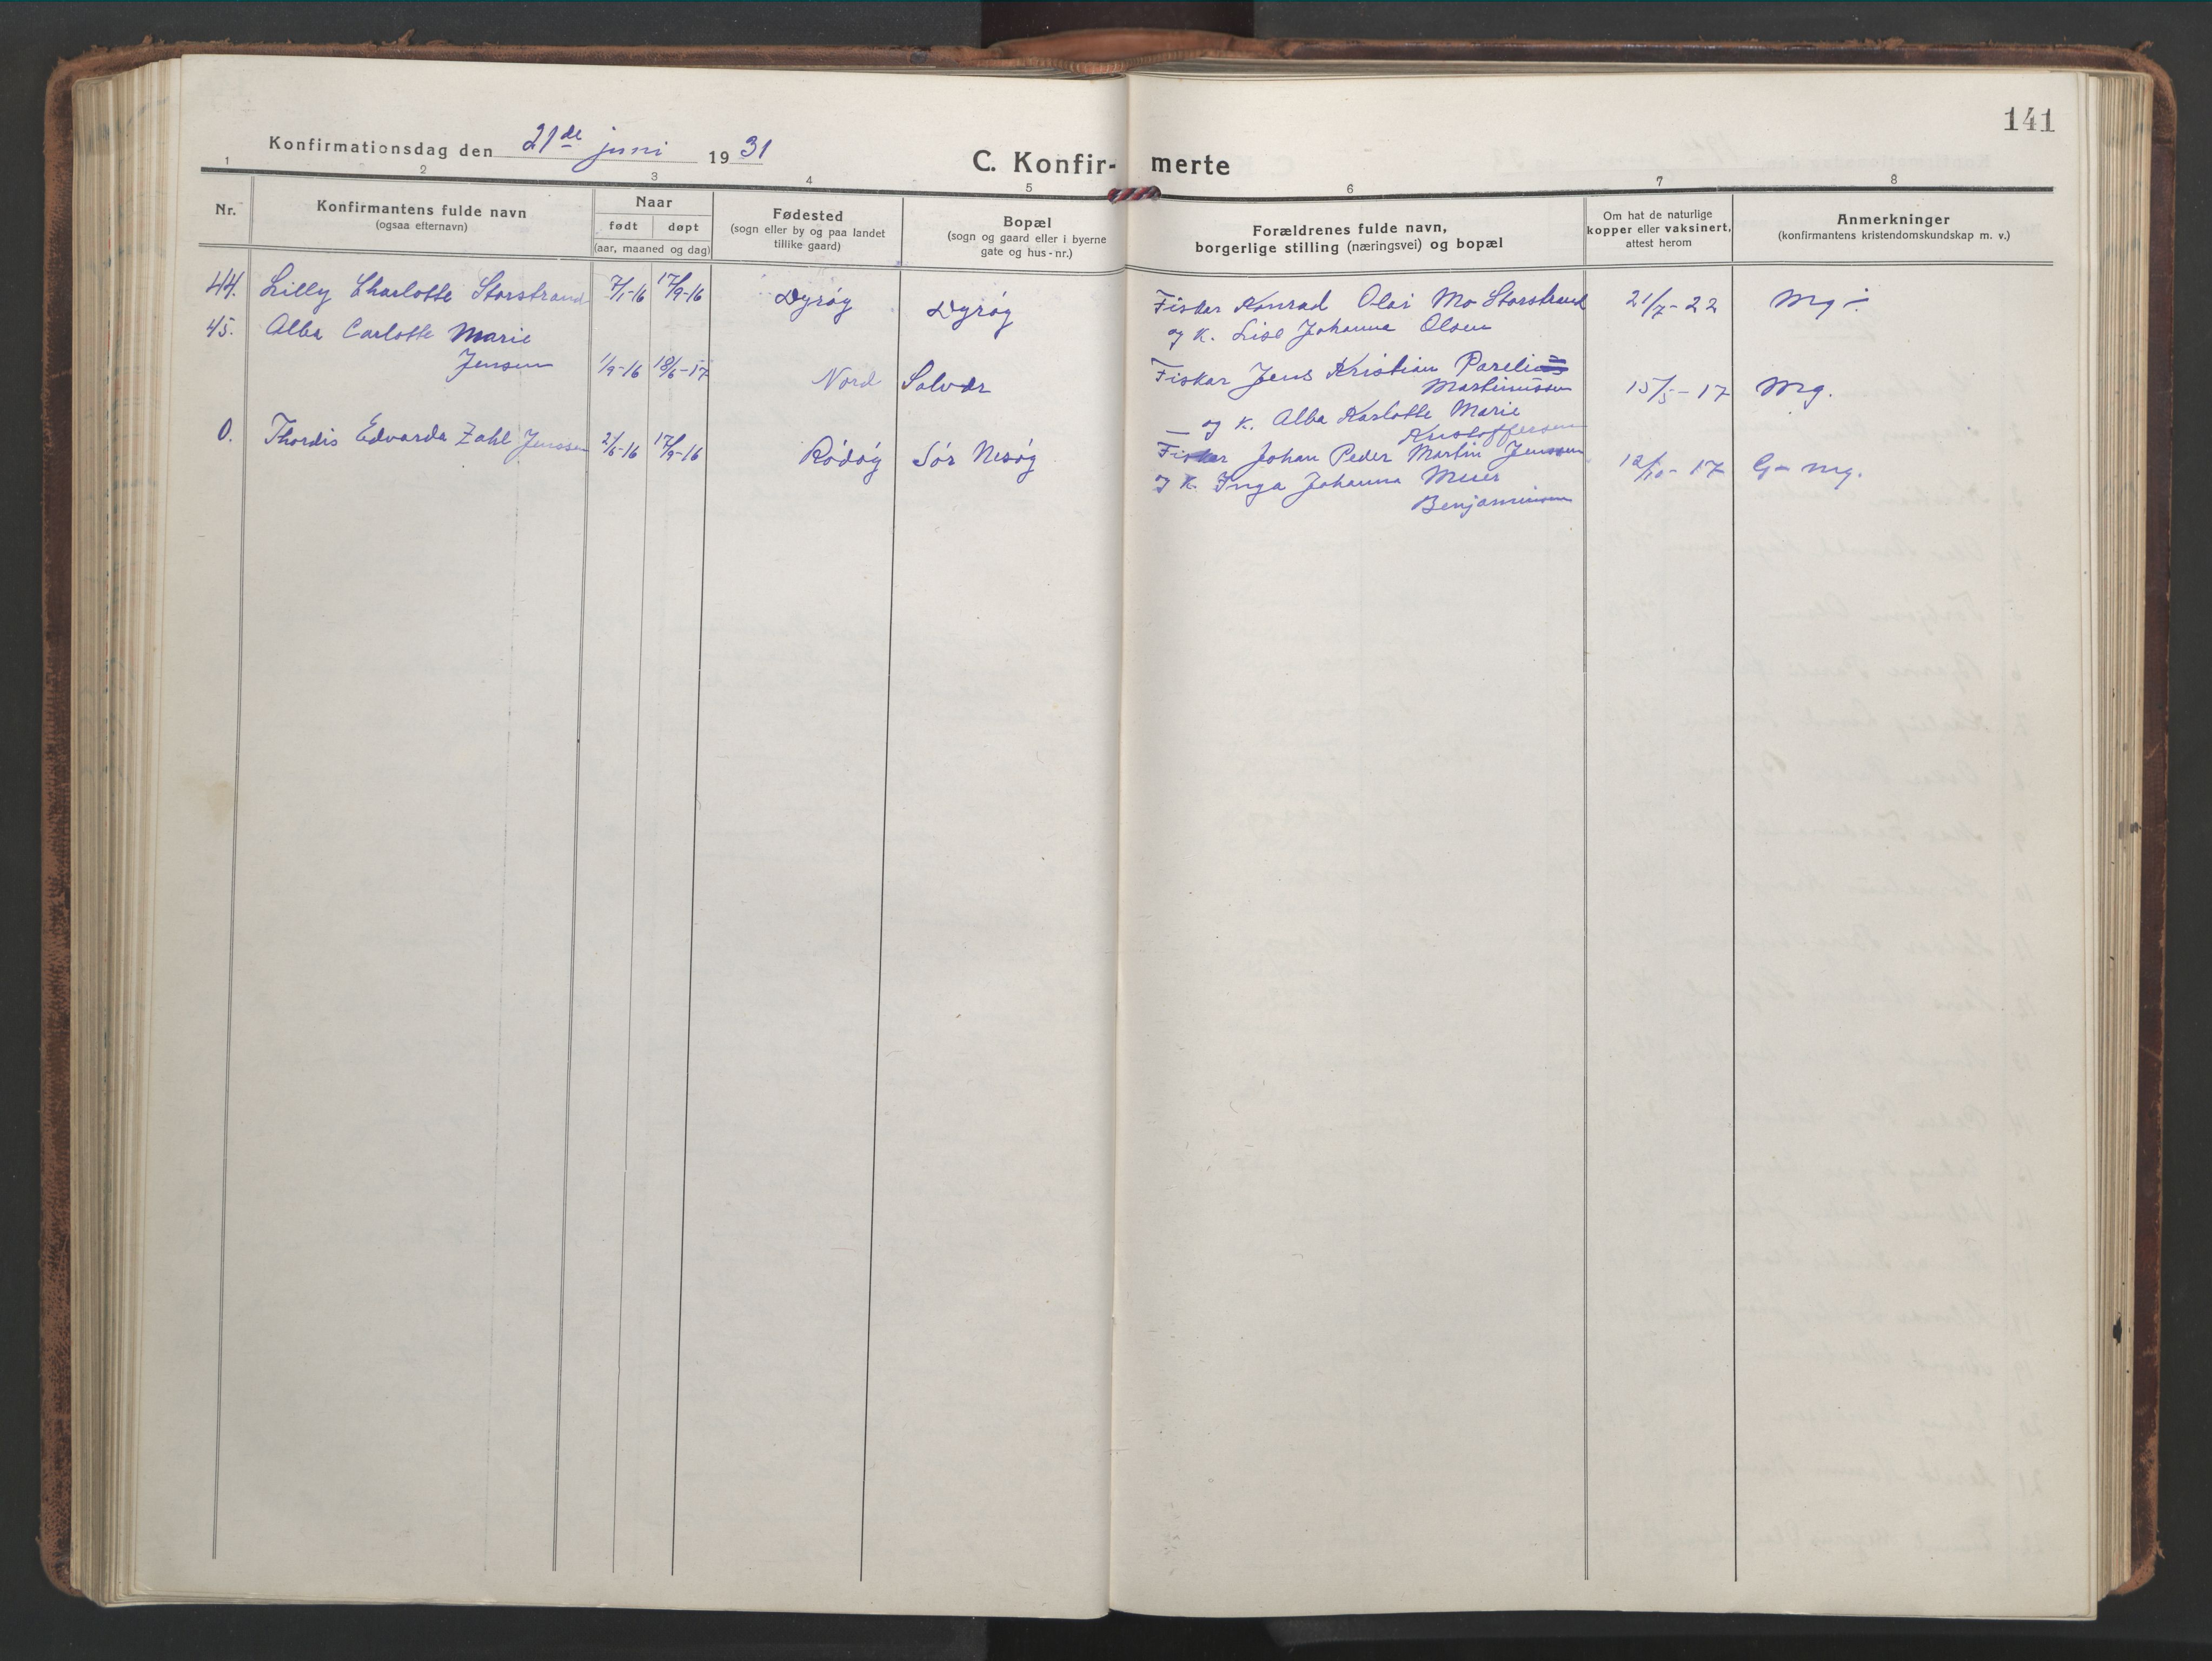 141
Konfirmationsdag den 21de juni 1931
C. Konfir- merte
1 2 3 4 5 6 7 8
Nr.
Konfirmantens fulde navn
(ogsaa efternavn)
Naar
født døpt
(aar, maaned og dag)
Fødested
(sogn eller by og paa landet
tillike gaard)
Bopæl
(sogn og gaard eller i byerne
gate og hus-nr.)
Forældrenes fulde navn,
borgerlige stilling (næringsvei) og bopæl
Om hat de naturlige
kopper eller vaksinert,
attest herom
Anmerkninger
(konfirmantens kristendomskundskap m. v.)
44. Lilly Charlotte Storstrand 7/1-16 17/9-16 Dyrøy Dyrøy Fiskar Konrad Olai Mo Storstrand 21/7-22 Mg ÷
og K. Lise Johanna Olsen
45. Alba Carlotte Marie
Jensen 1/9-16 18/6-17 Nord Solvær Fiskar Jens Kristian Parelius
Martinussen 15/5-17 Mg.
og K. Alba Karlotte Marie
Kristoffersen
0. Thordis Edvarda Zahl Jenssen 2/6-16 17/9-16 Rødøy Sør Nesøy Fiskar Johan Peder Martin Jenssen 12/10-17 G- mg.
og K. Inga Johanna Meier
Benjaminsen